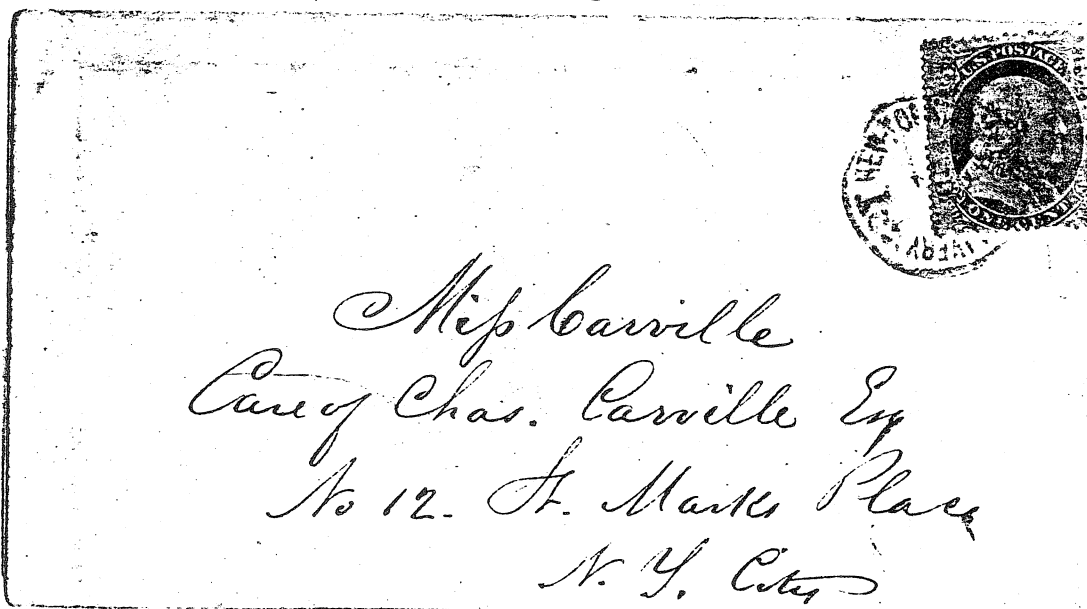 U.S. POSTAGE
NEW YO
Miss Carville
Care of Chas. Carville Esq
No 12. St. Marks Place
N. Y. City